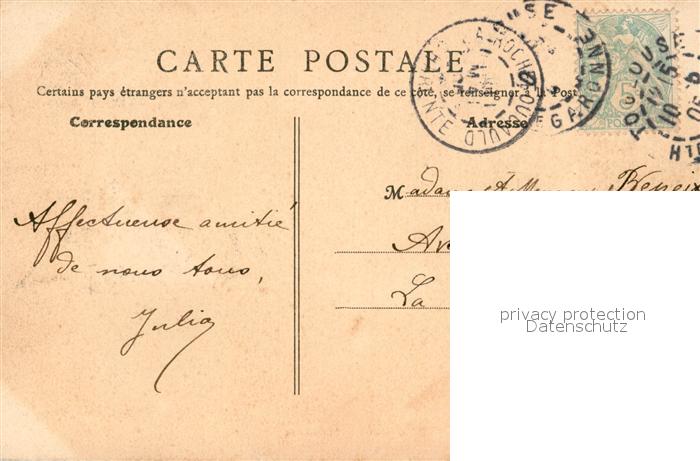 CARTE POSTALE
Certains pays étrangers n'acceptant pas la correspondance de ce côté, se renseigner à la Post
Correspondance
Adresse
Affectueuse amitié
de nous tous,
Julia
Madame
La
privacy protection
Datenschutz
LA ROCHEFOUCAULD
GARONNE